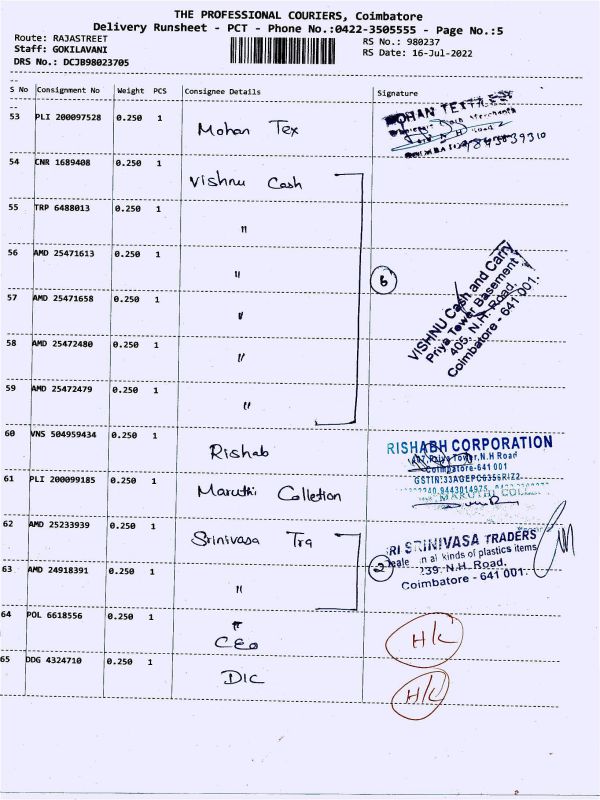 THE PROFESSIONAL COURIERS, Coimbatore
Delivery Runsheet - PCT - Phone No.:0422-3505555 - Page No.:5
Route: RAJASTREET
RS No.: 980237
Staff: GOKILAVANI
RS Date: 16-Jul-2022
DRS No.: DCJB98023705
S No Consignment No Weight PCS Consignee Details Signature
53 PLI 200097528 0.250 1 Mohan Tex
MOHAN TEXTILES
9843039310
54 CNR 1689408 0.250 1 Vishnu Cash
55 TRP 6488013 0.250 1 "
56 AMD 25471613 0.250 1 "
6
57 AMD 25471658 0.250 1 "
58 AMD 25472480 0.250 1 "
59 AMD 25472479 0.250 1 "
VISHNU Cash and Carry
Priya Tower Basement
405, N.H. Road,
Coimbatore - 641 001.
60 VNS 504959434 0.250 1 Rishab
RISHABH CORPORATION
Priya Tower, N.H Road
Coimbatore-641 001
61 PLI 200099185 0.250 1 Maruthi Colletion
MARUTHI COLL
62 AMD 25233939 0.250 1 Srinivasa Tra
SRI SRINIVASA TRADERS
in all kinds of plastics items
239, N.H. Road,
Coimbatore - 641 001.
2
63 AMD 24918391 0.250 1 "
64 POL 6618556 0.250 1 " CEO H/C
65 DDG 4324710 0.250 1 DIC H/C